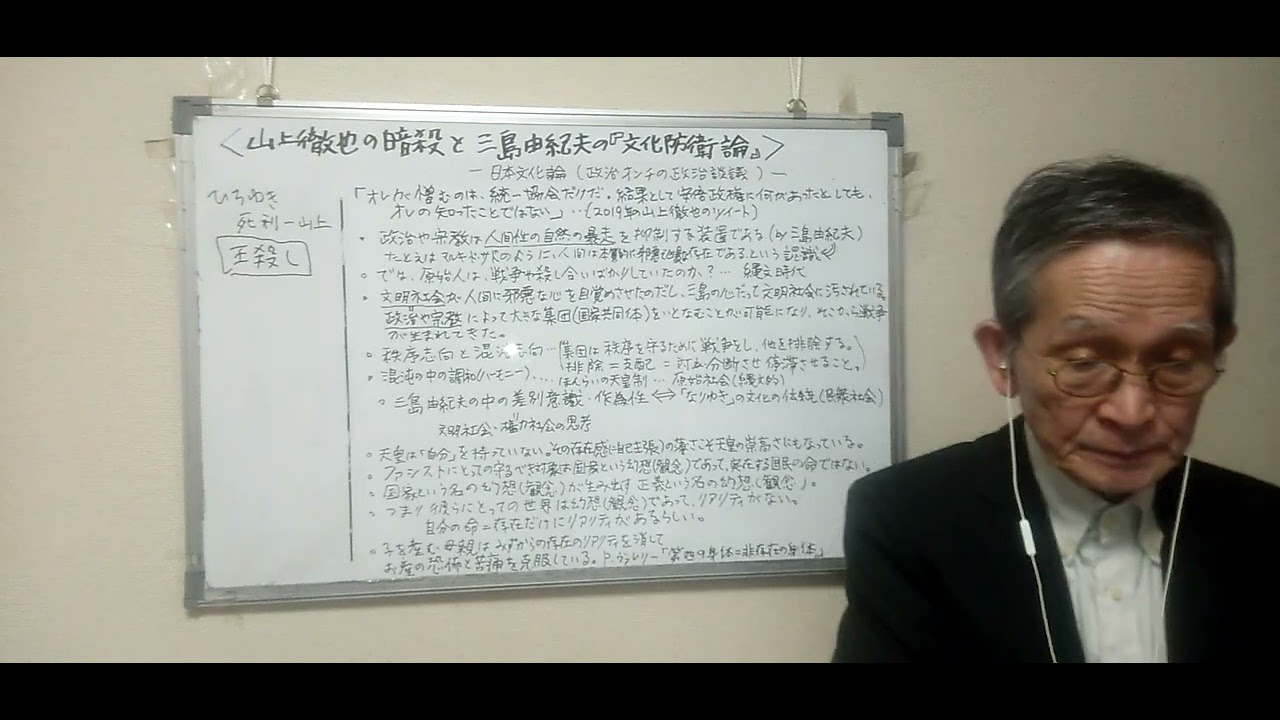 ＜山上徹也の暗殺と三島由紀夫の『文化防衛論』＞
― 日本文化論（政治オンチの政治談議）―
ひろゆき
死刑ー山上
王殺し
「オレが憎むのは、統一協会だけだ。結果として安倍政権に何があったとしても、
オレの知ったことではない」…（2019年の山上徹也のツイート）
・政治や宗教は人間性の自然の暴走を抑制する装置である（by 三島由紀夫）
たとえばマルキ・ド・サドのように、人間は本質的に邪悪な存在であるという認識
○では、原始人は、戦争や殺し合いばかりしていたのか？… 縄文時代
・文明社会が人間に邪悪な心を目覚めさせたのだし、三島の心だって文明社会に汚されている。
政治や宗教によって大きな集団（国家共同体）をいとなむことが可能になり、そこから戦争
が生まれてきた。
○秩序志向と混沌志向…（集団は秩序を守るために戦争をし、他を排除する。
排除＝支配＝対立分断させ停滞させること。）
・混沌の中の調和（ハーモニー）……ほんらいの天皇制… 原始社会（縄文的）
○三島由紀夫の中の差別意識・作為性⇔「なりゆき」の文化の伝統（民衆社会）
文明社会・権力社会の思考
○天皇は「自分」を持っていない。その存在感（自己主張）の薄さこそ天皇の崇高さにもなっている。
○ファシストにとっての守るべき対象は国家という幻想（観念）であって、実在する国民の命ではない。
○国家という名の幻想（観念）が生み出す正義という名の幻想（観念）。
○つまり彼らにとっての世界は幻想（観念）であって、リアリティがない。
自分の命＝存在だけにリアリティがあるらしい。
○子を産む母親はみずからの存在のリアリティを消して
お産の恐怖と苦痛を克服している。P・ヴァレリー「第四の身体＝非存在の身体」